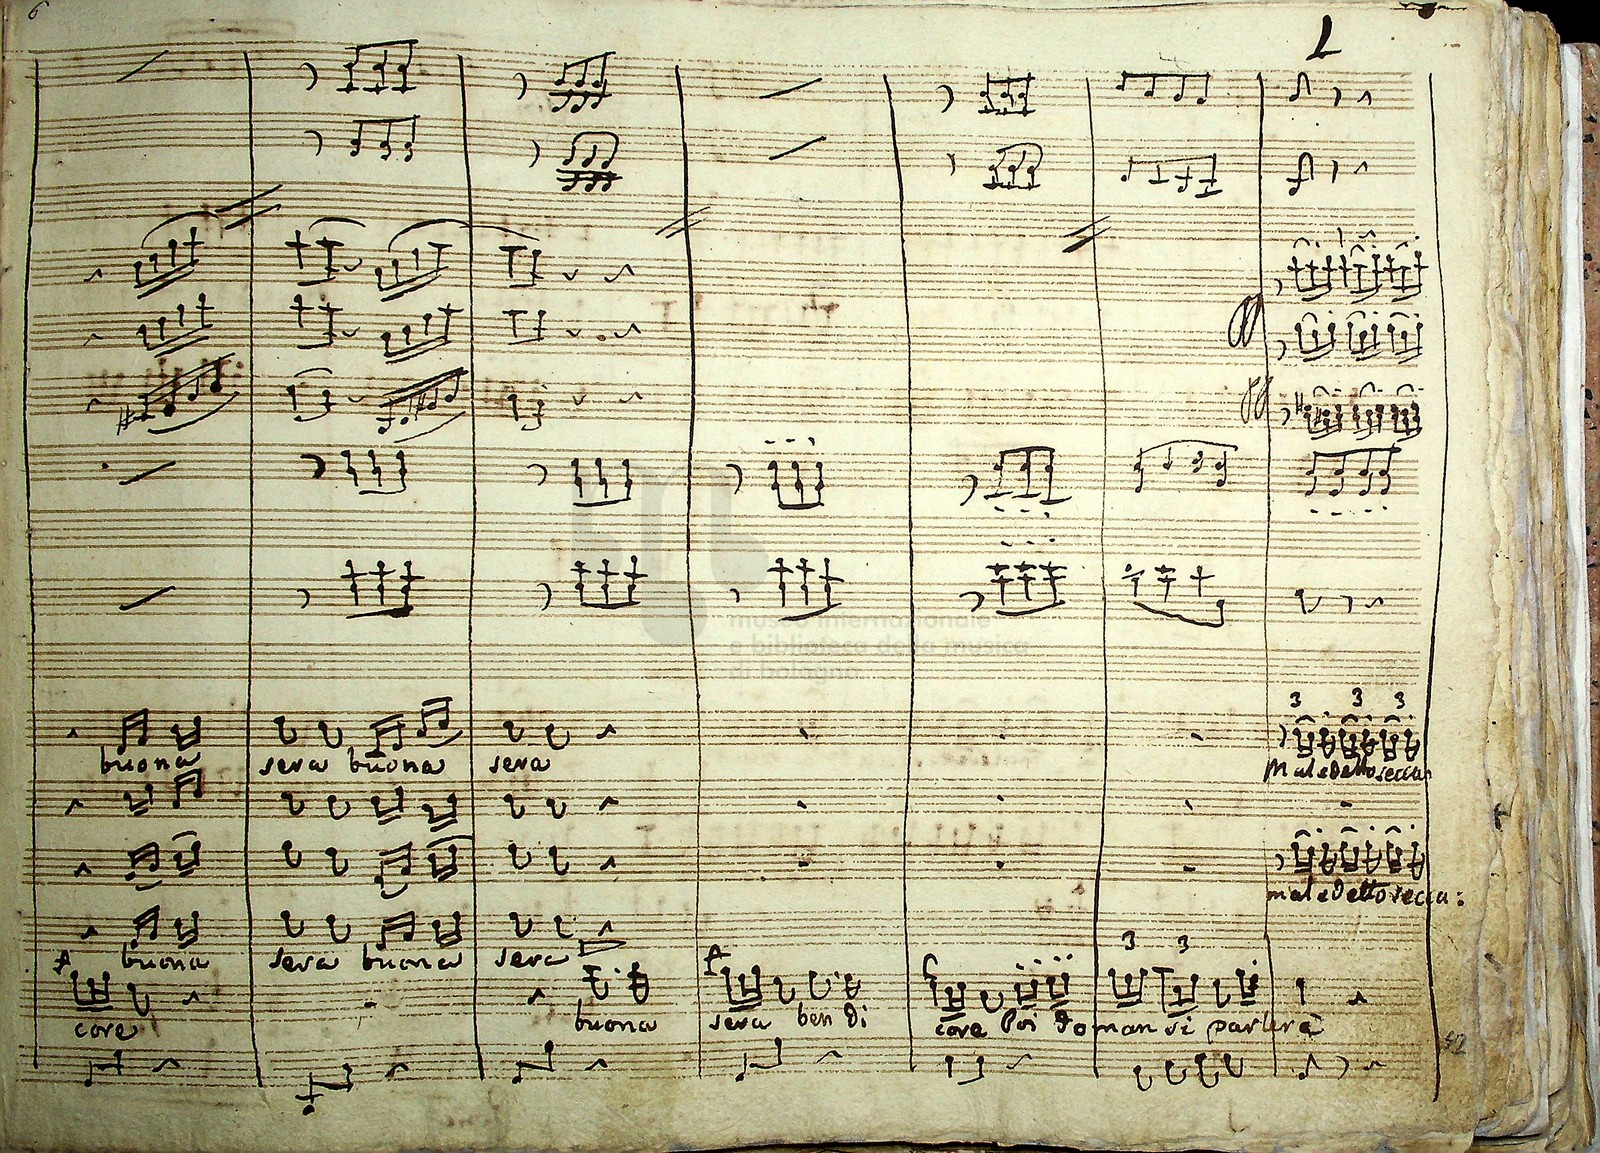 6
L
museo internazionale
e biblioteca della musica
di bologna
3 3 3
buona sera buona sera Maledetto secca:
maledetto secca:
buona sera buona sera
3 3
core buona sera ben di core Poi doman si parlerà
42